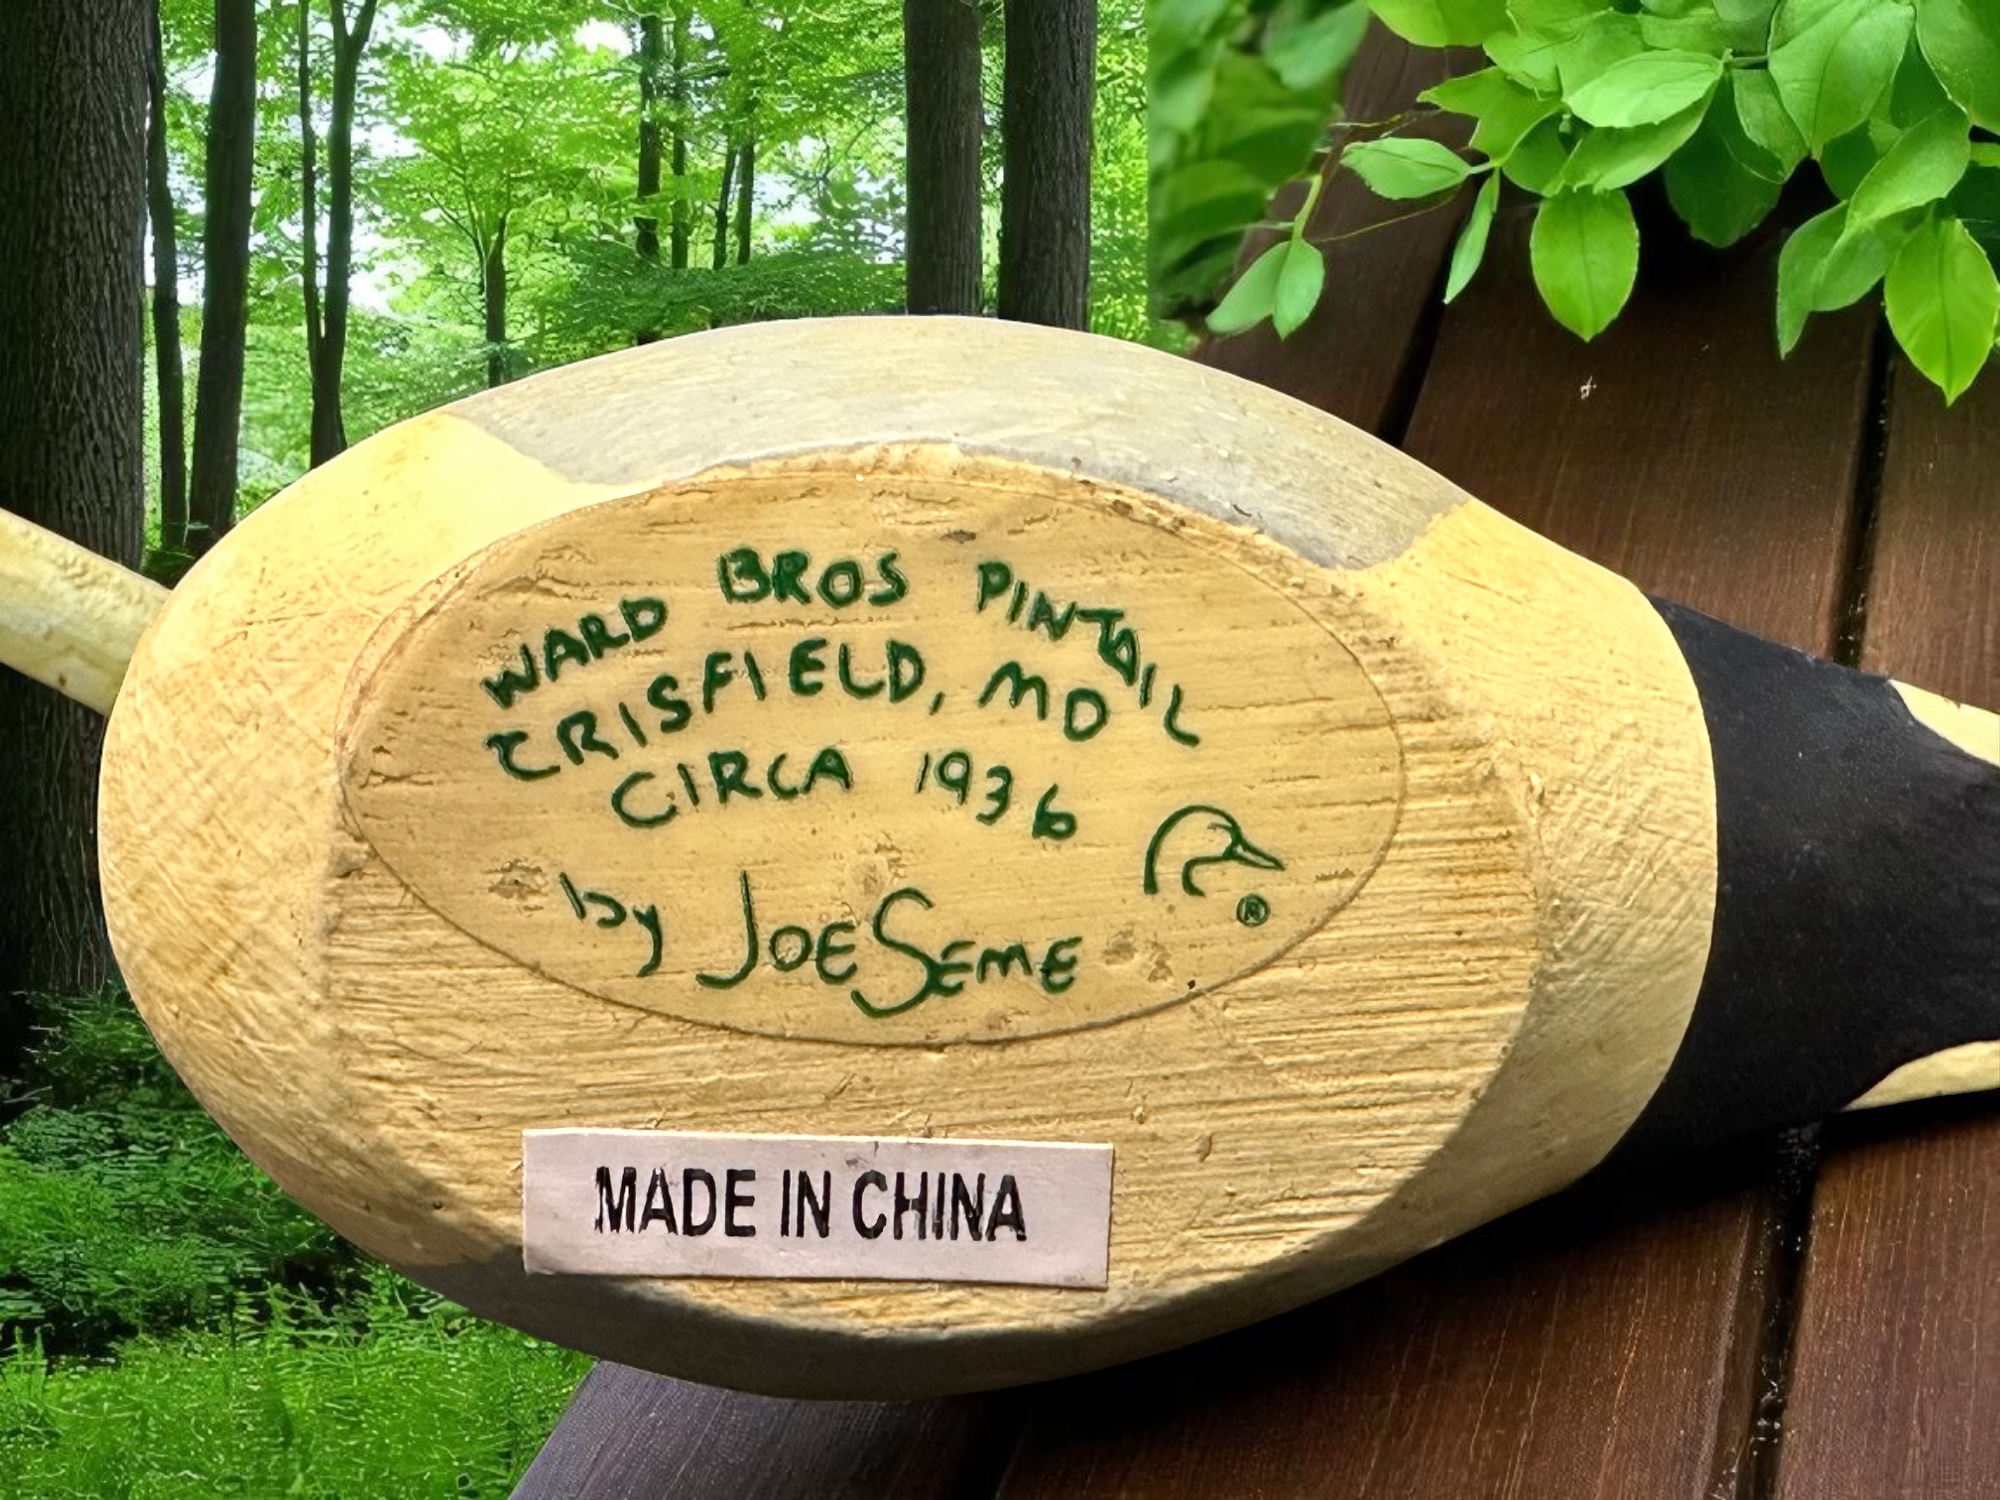 WARD BROS PINTAIL
CRISFIELD, MD
CIRCA 1936
by JOE SEME
®
MADE IN CHINA